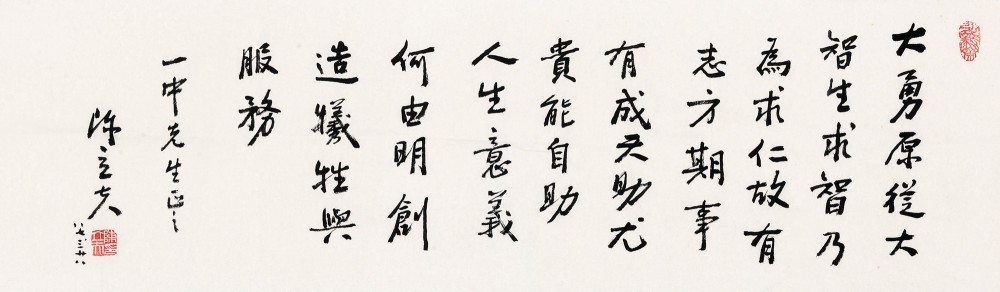 大勇原從大
智生求智乃
為求仁故有
志方期事
有成天助尤
貴能自助
人生意義
何由明創
造犧牲與
服務
一中先生正之
陳立夫
八七、三、廿八